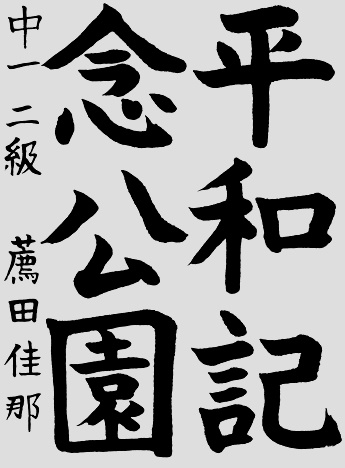 平和記
念公園
中一 二級 薦田佳那